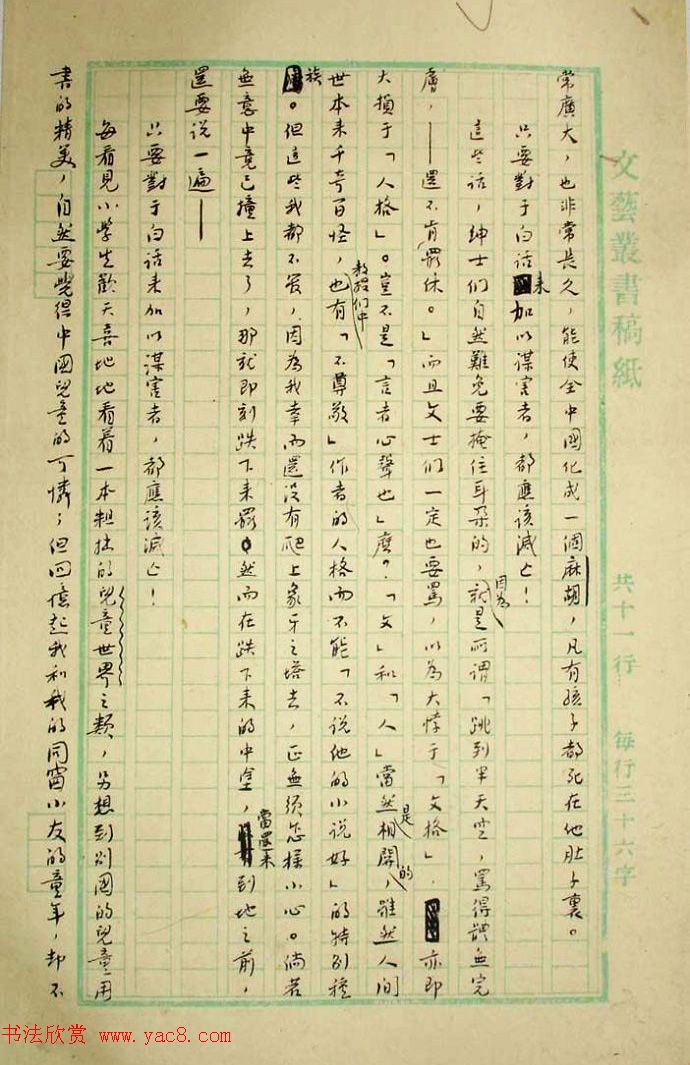 文藝叢書稿紙 共十一行 每行三十六字
常廣大,也非常長久,能使全中國化成一個麻胡,凡有孩子都死在他肚子裏。
只要對于白話来加以謀害者,都應該滅亡!
這些話,紳士們自然難免要掩住耳朵的,因為就是所謂「跳到半天空,罵得體無完
膚,——還不肯罷休。」而且文士們一定也要罵,以為大悖于「文格」,亦即
大損于「人格」。豈不是「言者心聲也」麽?「文」和「人」當然是相關的,雖然人間
世本来千奇百怪,教授們中也有「不尊敬」作者的人格而不能「不说他的小说好」的特别種
族。但這些我都不管,因為我幸而還没有爬上象牙之塔去,正無須怎樣小心。倘若
無意中竟已撞上去了,那就即刻跌下来罷。然而在跌下来的中途,當還未到地之前,
還要说一遍——
只要對于白話来加以謀害者,都應該滅亡!
每看見小學生歡天喜地地看着一本粗拙的兒童世界之類,另想到别國的兒童用
書的精美,自然要覺得中國兒童的可憐;但回憶起我和我的同窗小友的童年,却不
书法欣赏 www.yac8.com